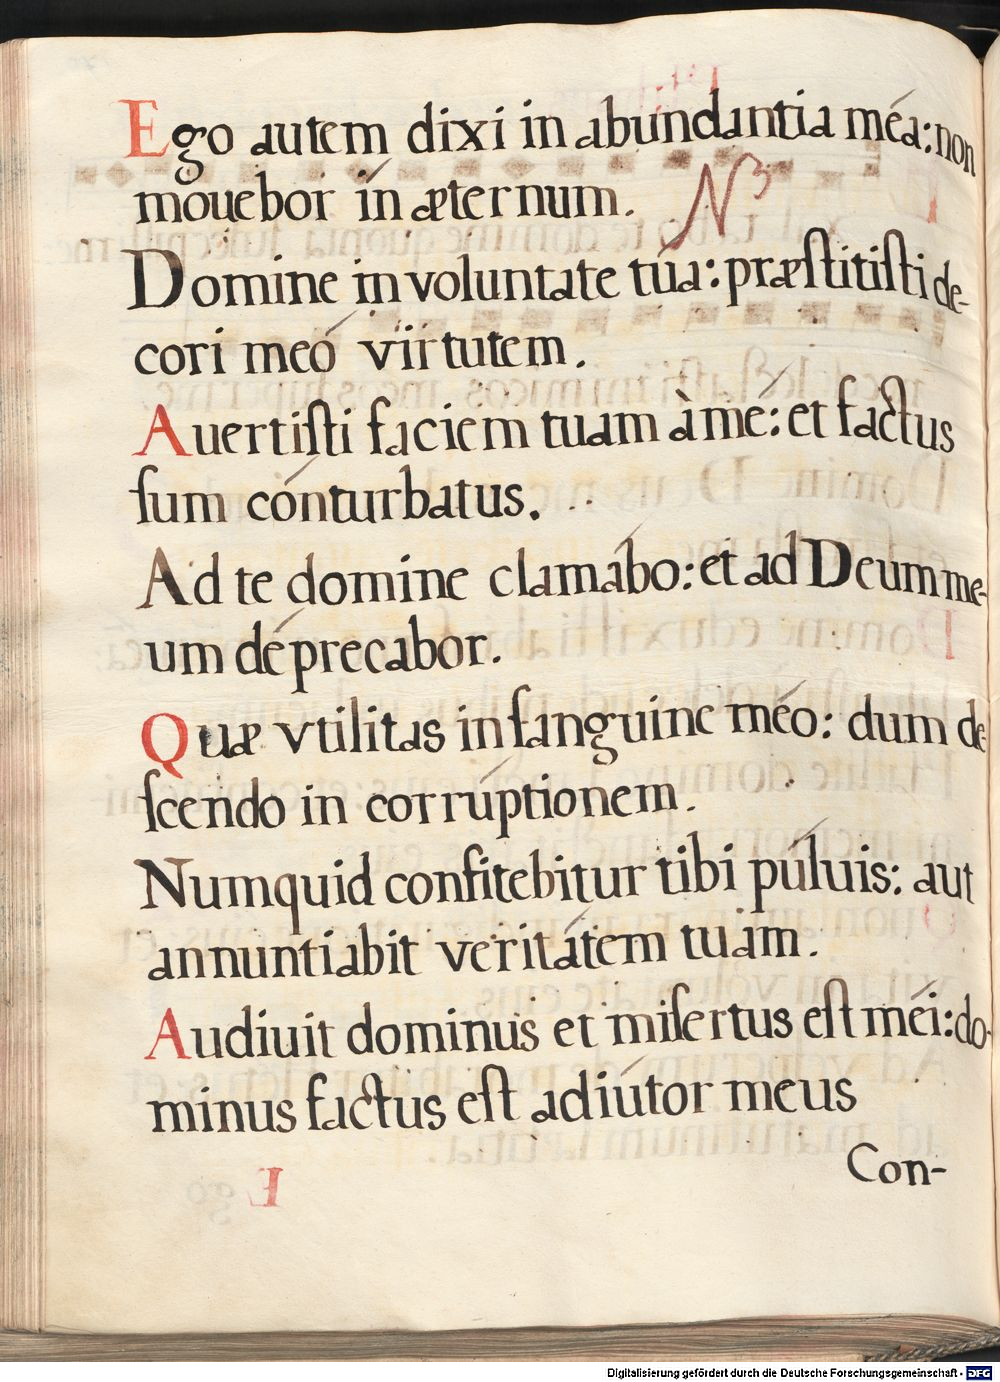 Ego autem dixi in abundantia méa: non
mouebor in æternum. N3
Domine in voluntate túa: præſtitiſti de-
cori meo virtutem.
Auertiſti faciem tuam à mé: et factus
ſum conturbatus.
Ad te domine clamabo: et ad Deum me-
um deprecabor.
Quæ vtilitas in ſanguine méo: dum de-
ſcendo in corruptionem.
Numquid confitebitur tibi púluis: aut
annuntiabit veritatem tuam.
Audiuit dominus et miſertus eſt méi: do-
minus factus eſt adiutor meus
Con-
Digitalisierung gefördert durch die Deutsche Forschungsgemeinschaft - DFG